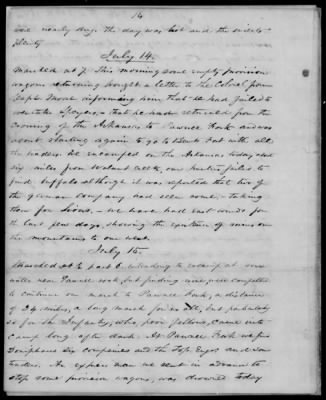 14
were nearly dry. The day was hot and the
plenty
July 14.
Marched at 7. This morning some empty provision
wagons returning brought a letter to the Colonel from
Capt Moore informing him that he had failed to
overtake Speyers, that he had returned from the
crossing of the Arkansas to Pawnee Rock and was
again starting to go to Bents Fort with all
the traders. We encamped on the Arkansas today
six miles from Walnut Creek, our hunters failed to
find buffalo although it was reported that two of
the german company had seen some, taking
them for lions. We have had east winds for
the last few days, showing the existence of snow on
the mountains to our west.
July 15.
Marched at ½ past 6, intending to encamp at some
water near Pawnee rock, but finding none, were compelled
to continue on march to Pawnee Fork, a distance
of 24 miles, a long march for us all, but particularly
so for the Infantry, who, poor fellows, came into
camp long after dark. At Pawnee Fork we found
Doniphans six companies and the Top. Engrs and some
traders. An express man we sent in advance to
stop some provision wagons, was drowned today